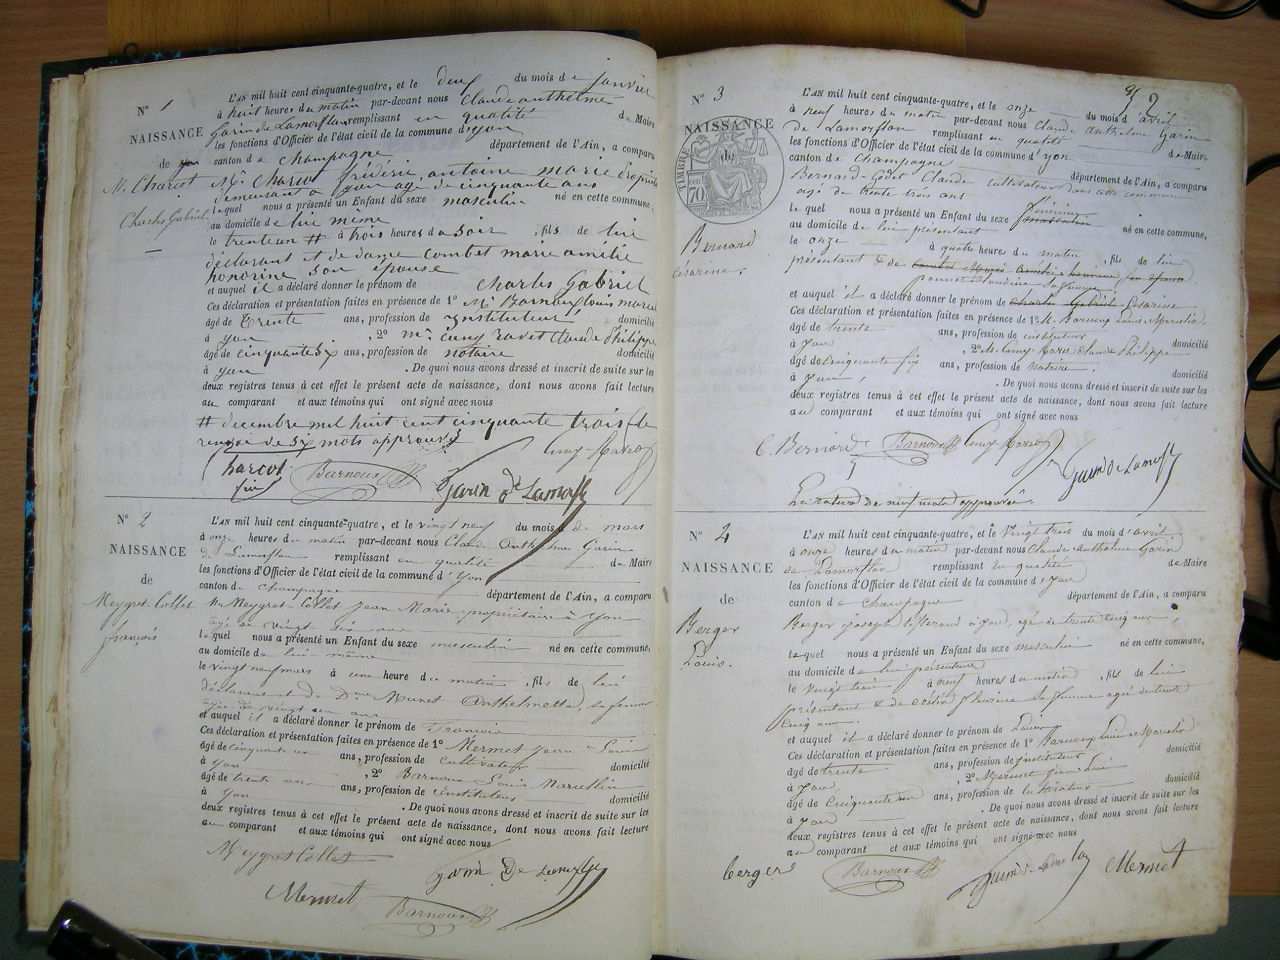 N° 1
NAISSANCE
de
M. Charcot
Charles Gabriel
L'AN mil huit cent cinquante-quatre, et le deux du mois de janvier
à huit heures du matin par-devant nous Claude anthelme
Garin de Lamorflan remplissant en qualité de Maire
les fonctions d'Officier de l'état civil de la commune d'yon
canton de Champagne département de l'Ain, a comparu
Mr Charcot frédéric antoine marie
demeurant a yon age de cinquante ans
le quel nous a présenté un Enfant du sexe masculin né en cette commune,
au domicile de lui même
le trente un # à trois heures du soir, fils de lui
déclarant et de dame Combet marie amélie
honorine son épouse
et auquel il a déclaré donner le prénom de Charles Gabriel
Ces déclaration et présentation faites en présence de 1° Mr Barnoux Louis marcel
âgé de Trente ans, profession de instituteur domicilié
à yon, 2° Mr Cuny Ravet Claude Philippe
âgé de cinquante six ans, profession de notaire domicilié
à yon. De quoi nous avons dressé et inscrit de suite sur les
deux registres tenus à cet effet le présent acte de naissance, dont nous avons fait lecture
au comparant et aux témoins qui ont signé avec nous
# decembre mil huit cent cinquante trois, le
renvoi de six mots approuvés
Charcot Barnoux
Garin de Lamorfl
N° 2
NAISSANCE
de
Meygret-Collet
françois
L'AN mil huit cent cinquante-quatre, et le vingt neuf du mois de mars
à onze heures du matin par-devant nous Claude Anthelme Garin
de Lamorflan remplissant en qualité de Maire
les fonctions d'Officier de l'état civil de la commune d'Yon
canton de champagne département de l'Ain, a comparu
Meygret-Collet Jean Marie propriétaire à Yon
le quel nous a présenté un Enfant du sexe masculin né en cette commune,
au domicile de lui même
le vingt neuf mars à une heure du matin, fils de lui
déclarant et de Anthelmette, sa femme
et auquel il a déclaré donner le prénom de françois
Ces déclaration et présentation faites en présence de 1° Mermet Jean-Louis
âgé de cinquante ans, profession de Cultivateur domicilié
à Yon, 2° Barnoux Louis Marcellin
âgé de trente ans, profession de instituteur domicilié
à Yon. De quoi nous avons dressé et inscrit de suite sur les
deux registres tenus à cet effet le présent acte de naissance, dont nous avons fait lecture
au comparant et aux témoins qui ont signé avec nous
Meygret Collet Garin De Lamorflan
Mermet Barnoux
N° 3
NAISSANCE
de
TIMBRE
70
Bernard
Césarine.
L'AN mil huit cent cinquante-quatre, et le onze du mois d'avril
à neuf heures du matin par-devant nous Claude Anthelme Garin
de Lamorflan remplissant en qualité de Maire
les fonctions d'Officier de l'état civil de la commune d'yon
canton de Champagne département de l'Ain, a comparu
Bernard-Godet Claude cultivateur dans cette commune
agé de trente trois ans
le quel nous a présenté un Enfant du sexe féminin masculin né en cette commune,
au domicile de lui présentant
le onze à quatre heures du matin, fils de lui
présentant & de
et auquel il a déclaré donner le prénom de Charles Gabriel Césarine
Ces déclaration et présentation faites en présence de 1° M. Barnoux Louis Marcelin
âgé de trente ans, profession de instituteur domicilié
à yon, 2° M. Cuny-Ravet Claude Philippe
âgé de cinquante six ans, profession de Notaire. domicilié
à yon. De quoi nous avons dressé et inscrit de suite sur les
deux registres tenus à cet effet le présent acte de naissance, dont nous avons fait lecture
au comparant et aux témoins qui ont signé avec nous
C. Bernard Barnoux Cuny-Ravet Garin de Lamorfl
La rature de neuf mots approuvée
N° 4
NAISSANCE
de
Berger
Louis.
L'AN mil huit cent cinquante-quatre, et le vingt trois du mois d'avril
à onze heures du matin par-devant nous Claude Anthelme Garin
de Lamorflan remplissant en qualité de Maire
les fonctions d'Officier de l'état civil de la commune d'yon
canton de Champagne département de l'Ain, a comparu
Berger joseph à yon, agé de trente cinq ans,
le quel nous a présenté un Enfant du sexe masculin né en cette commune,
au domicile de lui présentant
le vingt trois à neuf heures du matin, fils de lui
présentant & de sa femme agée de trente
cinq ans.
et auquel il a déclaré donner le prénom de Louis
Ces déclaration et présentation faites en présence de 1° Barnoux Louis Marcelin
âgé de trente ans, profession de instituteur domicilié
à yon, 2° Mermet Jean Louis
âgé de cinquante ans, profession de cultivateur domicilié
à yon. De quoi nous avons dressé et inscrit de suite sur les
deux registres tenus à cet effet le présent acte de naissance, dont nous avons fait lecture
au comparant et aux témoins qui ont signé avec nous
berger Barnoux Mermet